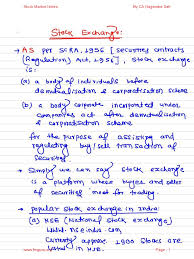 Stock Market Notes By CA Nagendra Sah
Stock Exchange:
→ AS per SCRA, 1956 [securities contracts
(Regulation) Act, 1956], stock exchange
is:
(a) a body of individuals before
demutualisation & corporatisation scheme
(b) a body corporate incorporated under
companies act after demutualisation
& corporatisation scheme
for the purpose of assisting and
regulating buy/sell transaction of
securities.
→ Simply we can say stock exchange
is a platform where buyer and seller
of securities meet for trading.
→ popular stock exchange in India:
(a) NSE (National stock exchange)
www.nseindia.com
Currently approx 1900 stocks are
Page 1